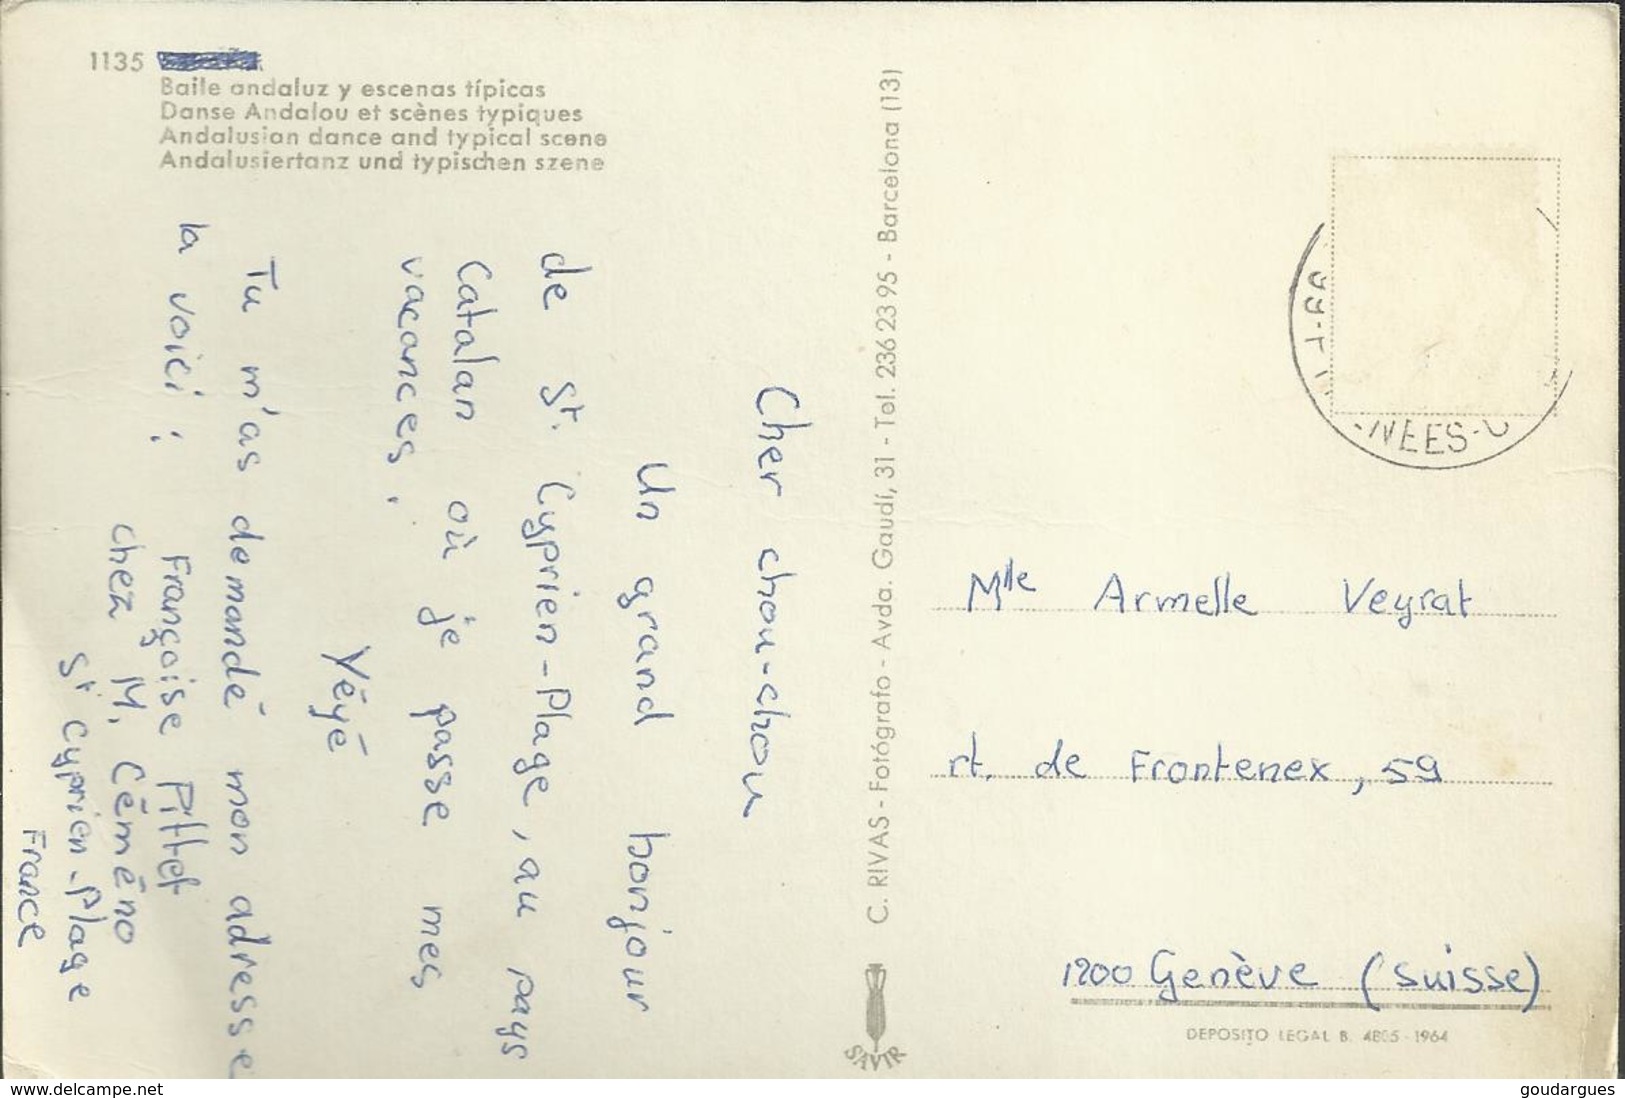 1135
Baile andaluz y escenas típicas
Danse Andalou et scènes typiques
Andalusian dance and typical scene
Andalusiertanz und typischen szene
Cher chou-chou
Un grand bonjour
de St. Cyprien-Plage, au pays
Catalan où je passe mes
vacances.
Yéyé
Tu m'as demandé mon adresse
la voici :
Françoise Pittet
chez M. Céméno
St Cyprien-Plage
France
C. RIVAS - Fotógrafo - Avda. Gaudí, 31 - Tel. 236 23 95 - Barcelona (13)
SAVIR
-NEES-O
Mlle Armelle Veyrat
rt. de Frontenex, 59
1200 Genève (Suisse)
DEPOSITO LEGAL B. 4805-1964
www.delcampe.net
goudargues